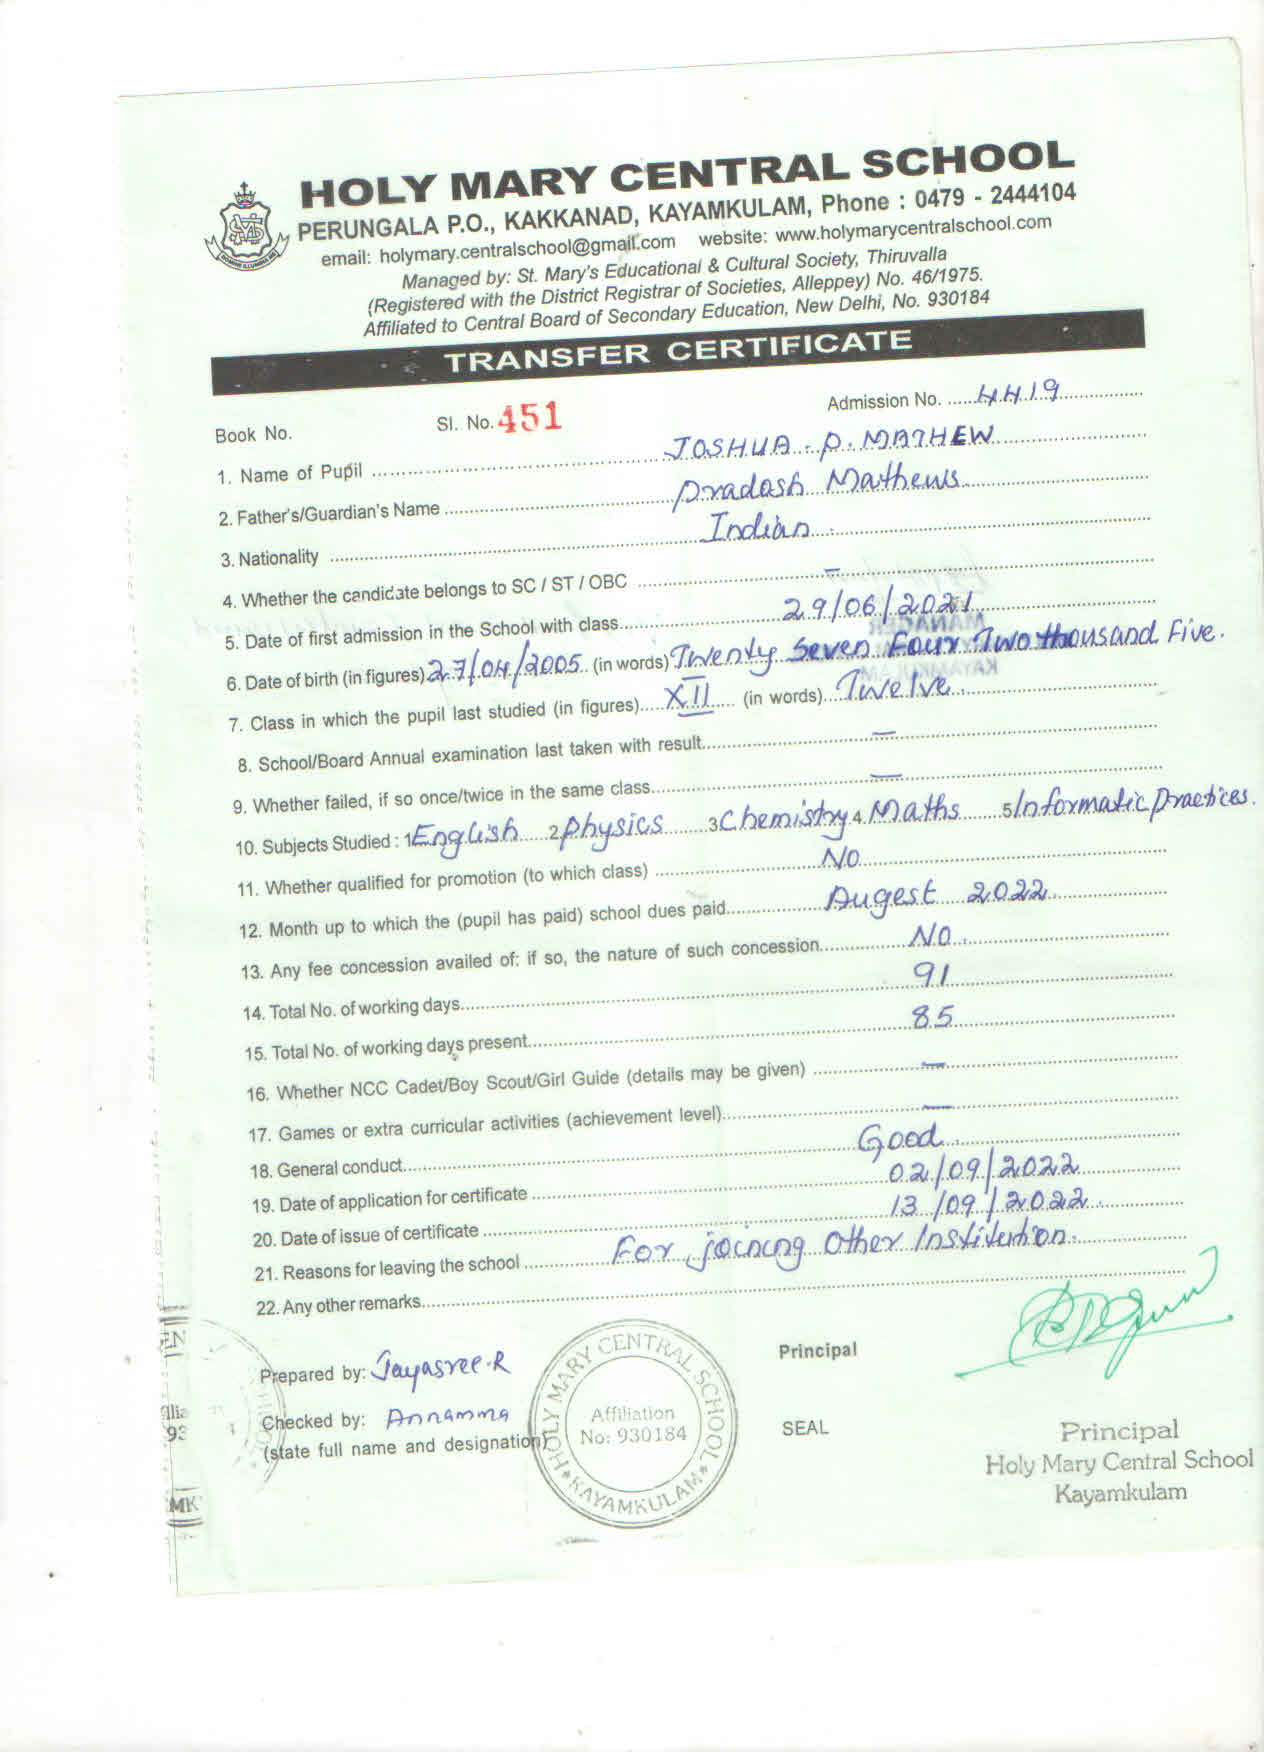 HOLY MARY CENTRAL SCHOOL
PERUNGALA P.O., KAKKANAD, KAYAMKULAM, Phone : 0479 - 2444104
email: holymary.centralschool@gmail.com website: www.holymarycentralschool.com
Managed by: St. Mary's Educational & Cultural Society, Thiruvalla
(Registered with the District Registrar of Societies, Alleppey) No. 46/1975.
Affiliated to Central Board of Secondary Education, New Delhi, No. 930184
TRANSFER CERTIFICATE
Book No. Sl. No. 451 Admission No. 4419
1. Name of Pupil JOSHUA . P. MATHEW
2. Father's/Guardian's Name Pradash Mathews
3. Nationality Indian
4. Whether the candidate belongs to SC / ST / OBC —
5. Date of first admission in the School with class 29/06/2021
6. Date of birth (in figures) 27/04/2005 (in words) Twenty Seven Four Two thousand Five.
7. Class in which the pupil last studied (in figures) XII (in words) Twelve.
8. School/Board Annual examination last taken with result —
9. Whether failed, if so once/twice in the same class —
10. Subjects Studied : 1 English 2 Physics 3 Chemistry 4 Maths 5 Informatic Practices.
11. Whether qualified for promotion (to which class) NO
12. Month up to which the (pupil has paid) school dues paid Augest 2022
13. Any fee concession availed of: if so, the nature of such concession NO.
14. Total No. of working days 91
15. Total No. of working days present 85
16. Whether NCC Cadet/Boy Scout/Girl Guide (details may be given) —
17. Games or extra curricular activities (achievement level) —
18. General conduct Good
19. Date of application for certificate 02/09/2022
20. Date of issue of certificate 13/09/2022.
21. Reasons for leaving the school For joining other Institution.
22. Any other remarks
Prepared by: Jayasree.R Principal
Checked by: Annamma SEAL
(state full name and designation)
HOLY MARY CENTRAL SCHOOL
Affiliation
No: 930184
KAYAMKULAM
Principal
Holy Mary Central School
Kayamkulam